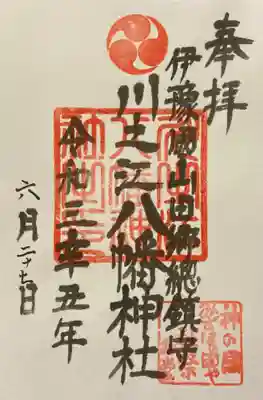 奉拝
伊豫國山田郷総鎮守
川之江八幡神社
令和三辛丑年
六月二十七日